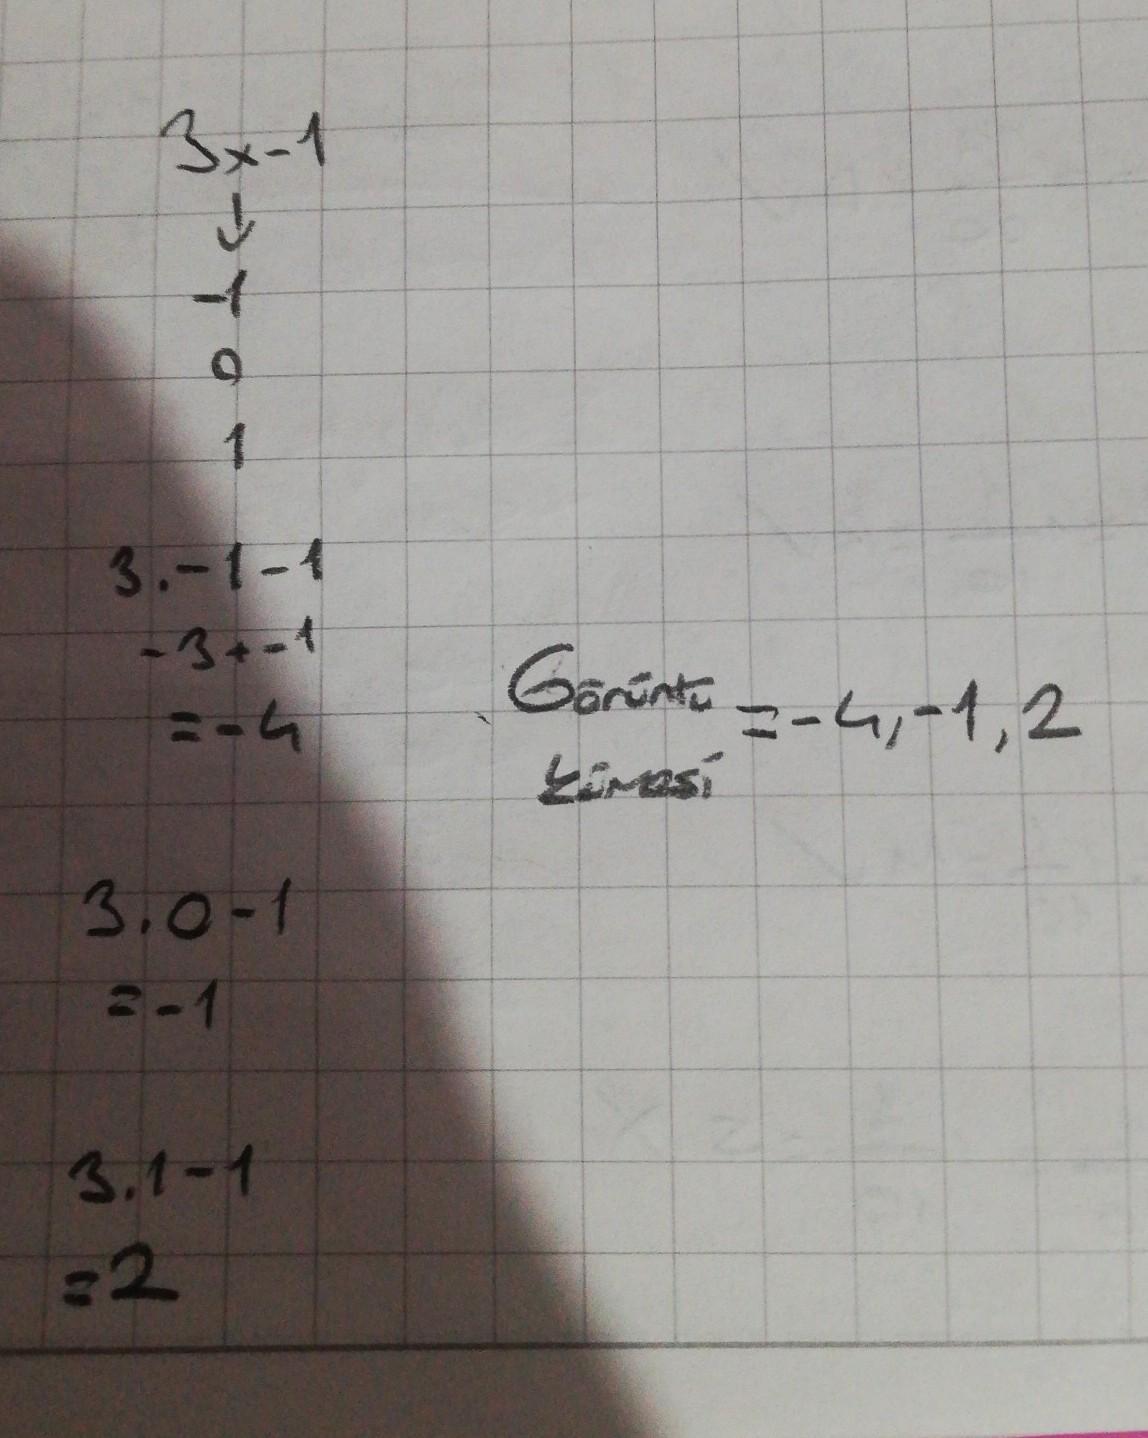 3x-1
↓
-1
0
1
3.-1-1
-3+-1
=-4
Görüntü
kümesi
=-4,-1,2
3.0-1
=-1
3.1-1
=2